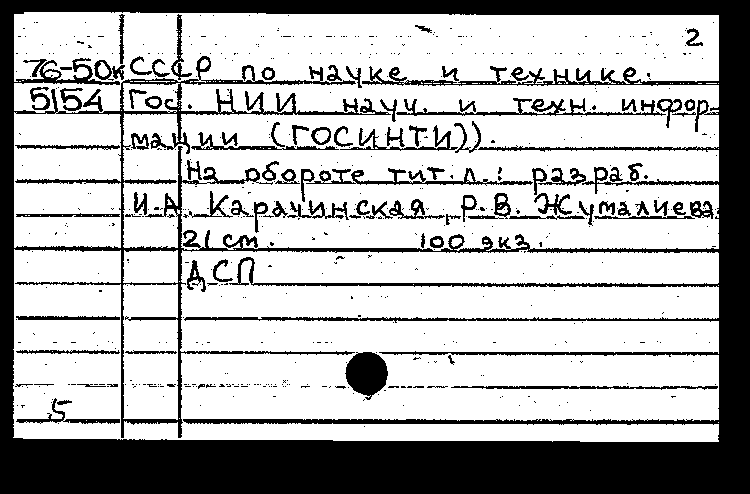 2
76-50к СССР по науке и технике.
5154 Гос. НИИ науч. и техн. инфор-
мации (ГОСИНТИ)).
На обороте тит.л.: разраб.
И.А. Карачинская, Р.В. Жумалиева.
21 см. 100 экз.
ДСП
5